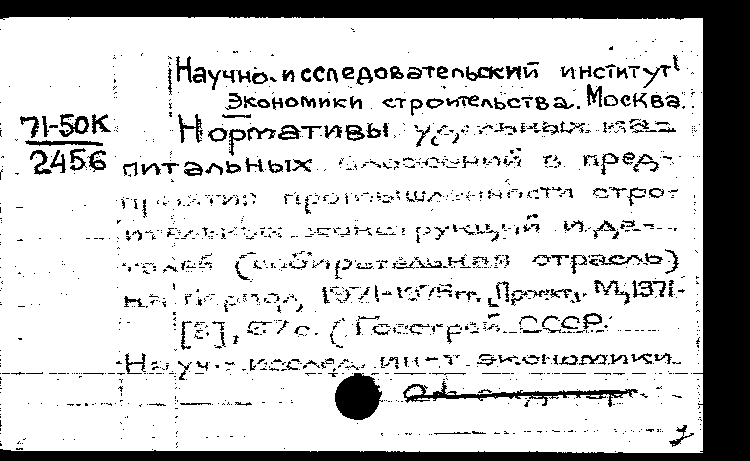 Научно-исследовательский институт
Экономики строительства. Москва.
71-50К
2456
Нормативы удельных ка-
питальных вложений в пред-
приятия промышленности стро-
ительных конструкций и де-
талей (собирательная отрасль)
на период 1971-1975гг. [Проект]. М, 1971-
[3], 67 с. (Госстрой СССР.
Науч.-исслед. ин-т экономики